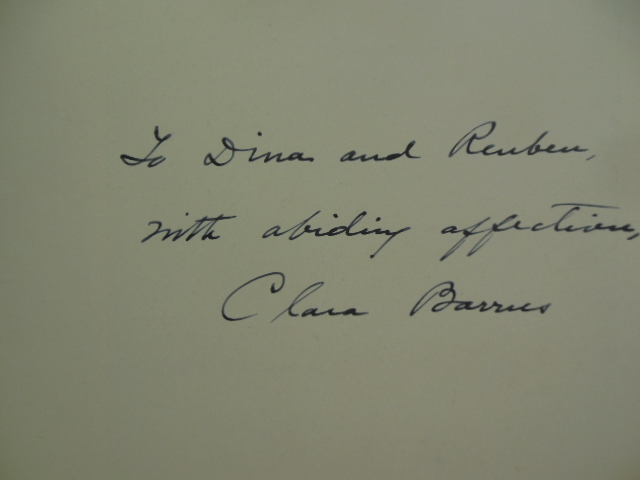 To Dina and Reuben,
with abiding affection,
Clara Barrus